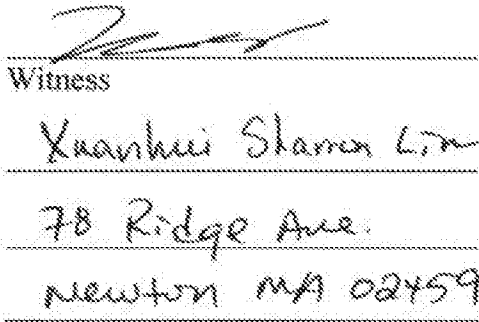 Witness
Xuanhui Sharon Lin
78 Ridge Ave.
Newton MA 02459